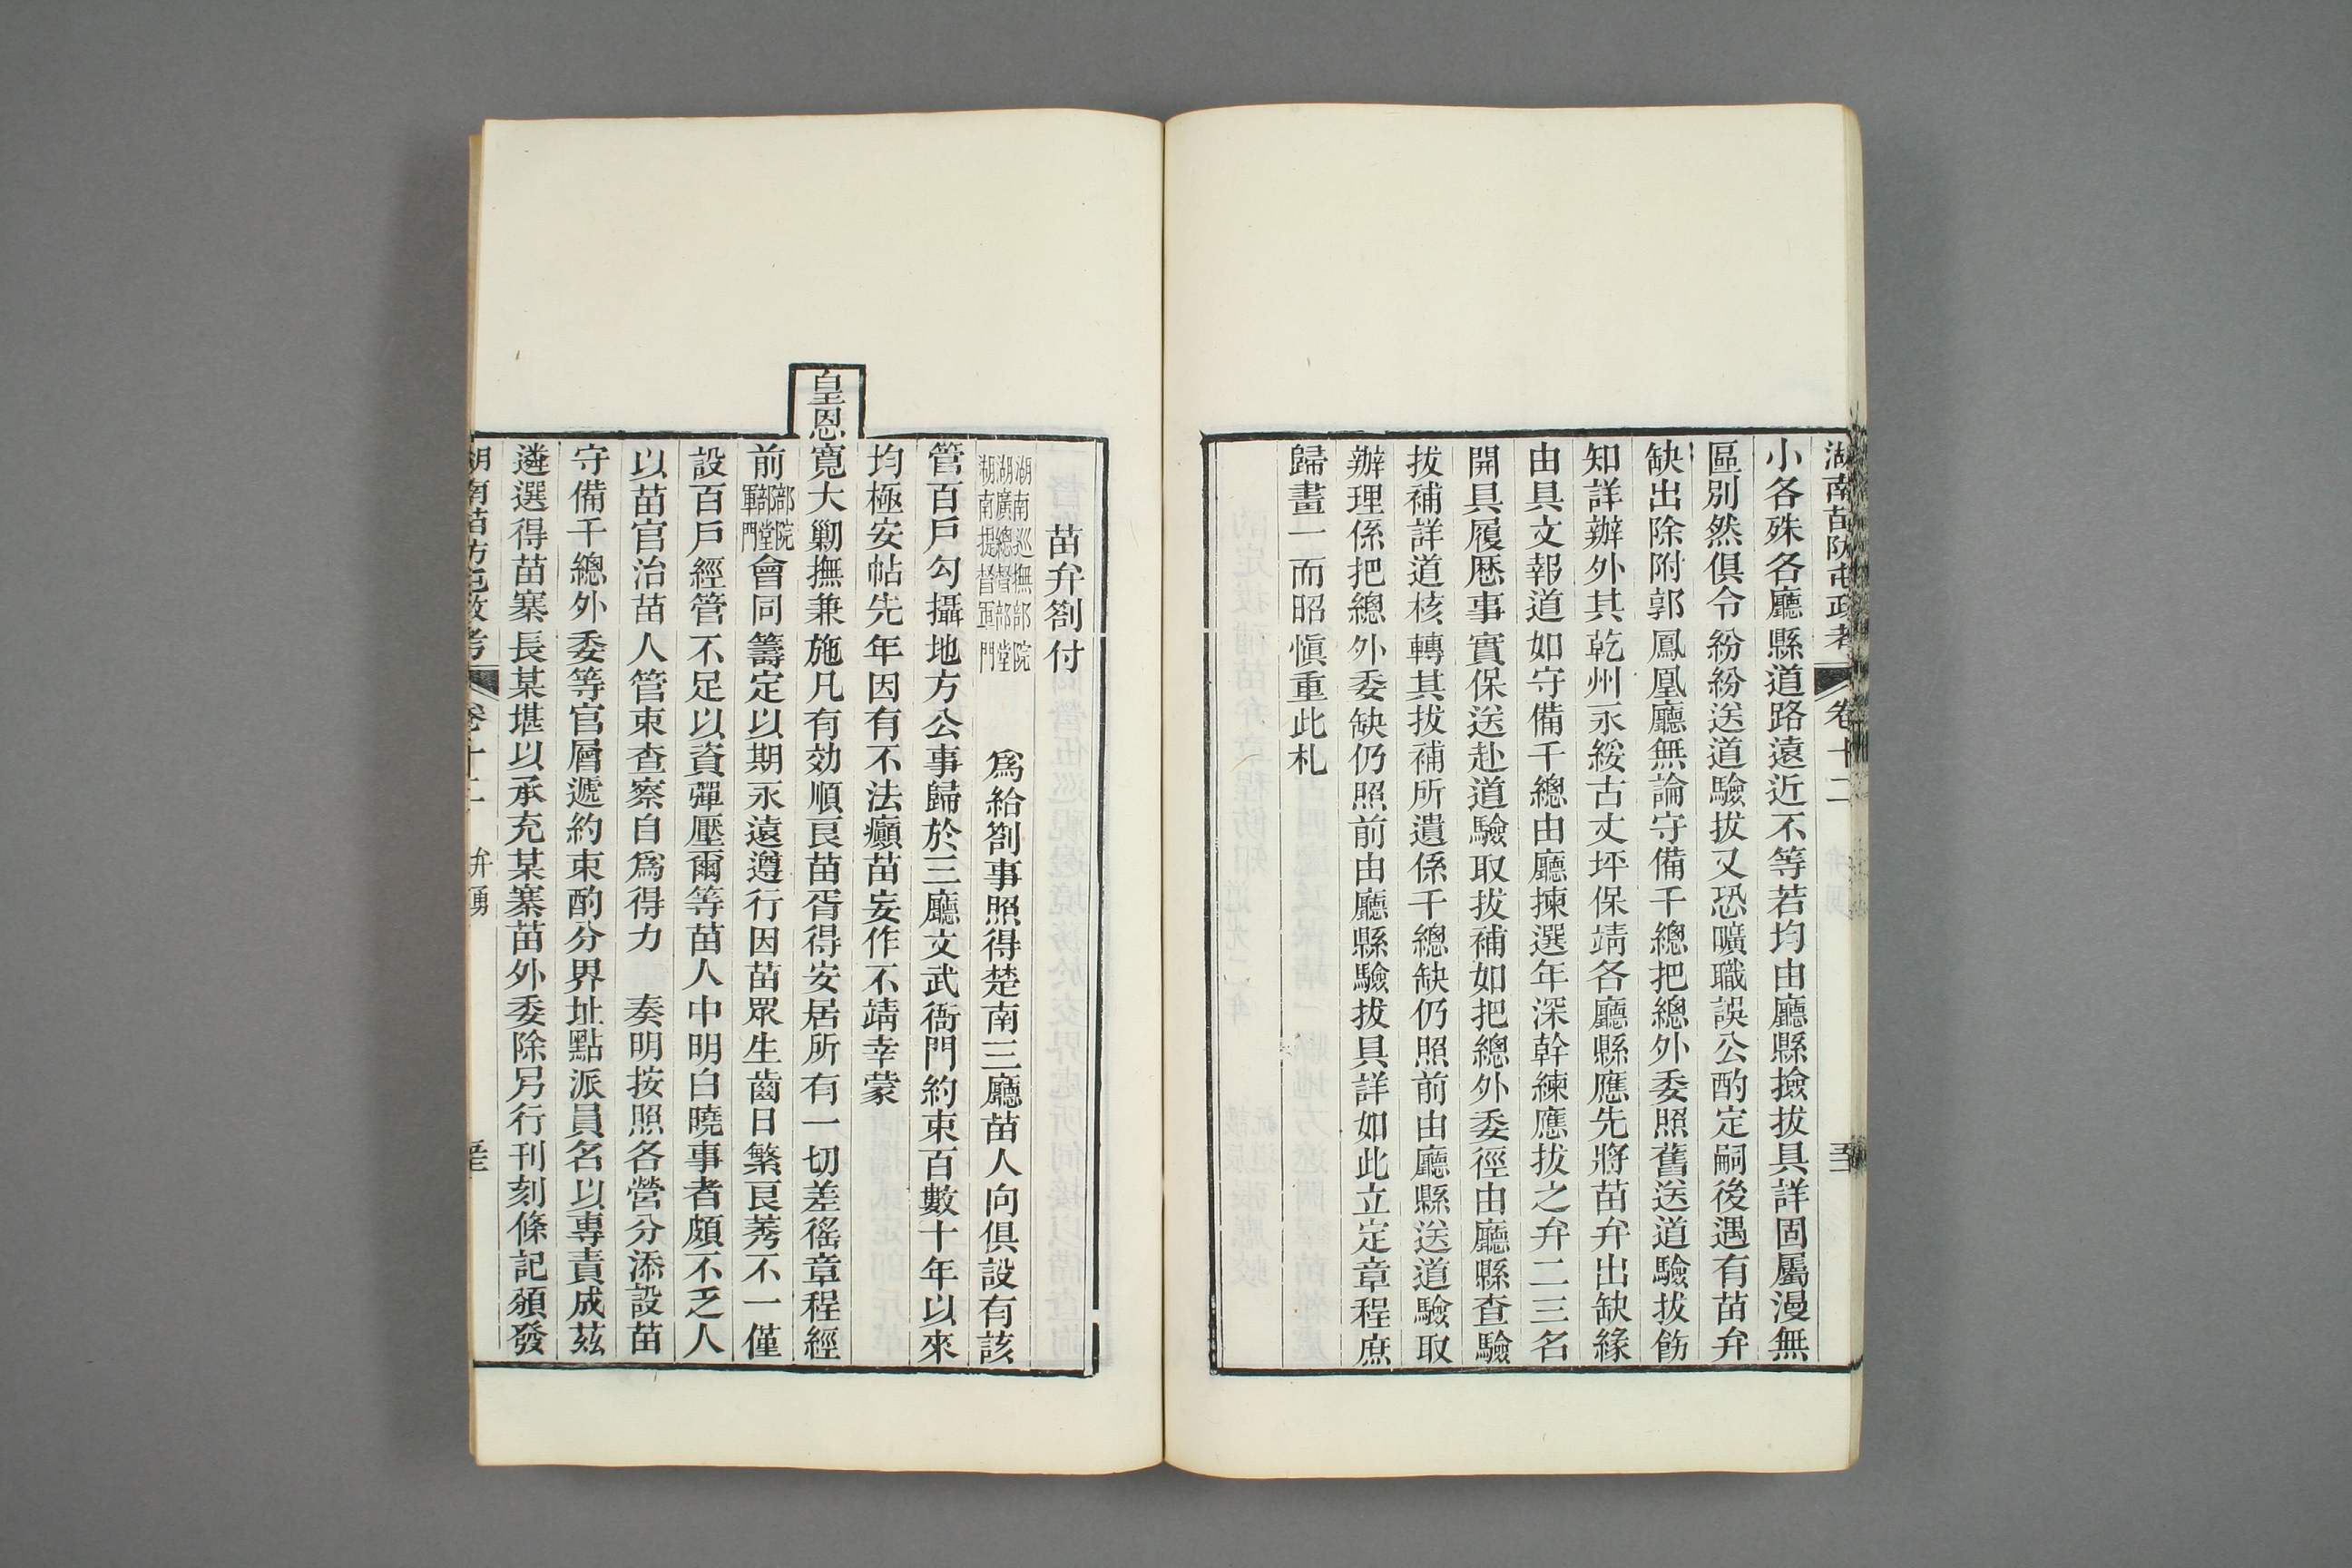 湖南苗防屯政考 卷十二 弁勇
小各殊各廳縣道路遠近不等若均由廳縣撿拔具詳固屬漫無
區別然俱令紛紛送道驗拔又恐曠職誤公酌定嗣後遇有苗弁
缺出除附郭鳳凰廳無論守備千總把總外委照舊送道驗拔飭
知詳辦外其乾州永綏古丈坪保靖各廳縣應先將苗弁出缺緣
由具文報道如守備千總由廳揀選年深幹練應拔之弁二三名
開具履歷事實保送赴道驗取拔補如把總外委徑由廳縣查驗
拔補詳道核轉其拔補所遺係千總缺仍照前由廳縣送道驗取
辦理係把總外委缺仍照前由廳縣驗拔具詳如此立定章程庶
歸畫一而昭慎重此札
苗弁劄付
湖南巡撫部院
湖廣總督部堂
湖南提督軍門
爲給劄事照得楚南三廳苗人向俱設有該
管百戶勾攝地方公事歸於三廳文武衙門約束百數十年以來
均極安帖先年因有不法癲苗妄作不靖幸蒙
皇恩寬大勦撫兼施凡有効順良苗胥得安居所有一切差徭章程經
前部院部堂軍門會同籌定以期永遠遵行因苗眾生齒日繁良莠不一僅
設百戶經管不足以資彈壓爾等苗人中明白曉事者頗不乏人
以苗官治苗人管束查察自爲得力 奏明按照各營分添設苗
守備千總外委等官層遞約束酌分界址點派員名以專責成茲
遴選得苗寨長某堪以承充某寨苗外委除另行刊刻條記頒發
湖南苗防屯政考 卷十二 弁勇